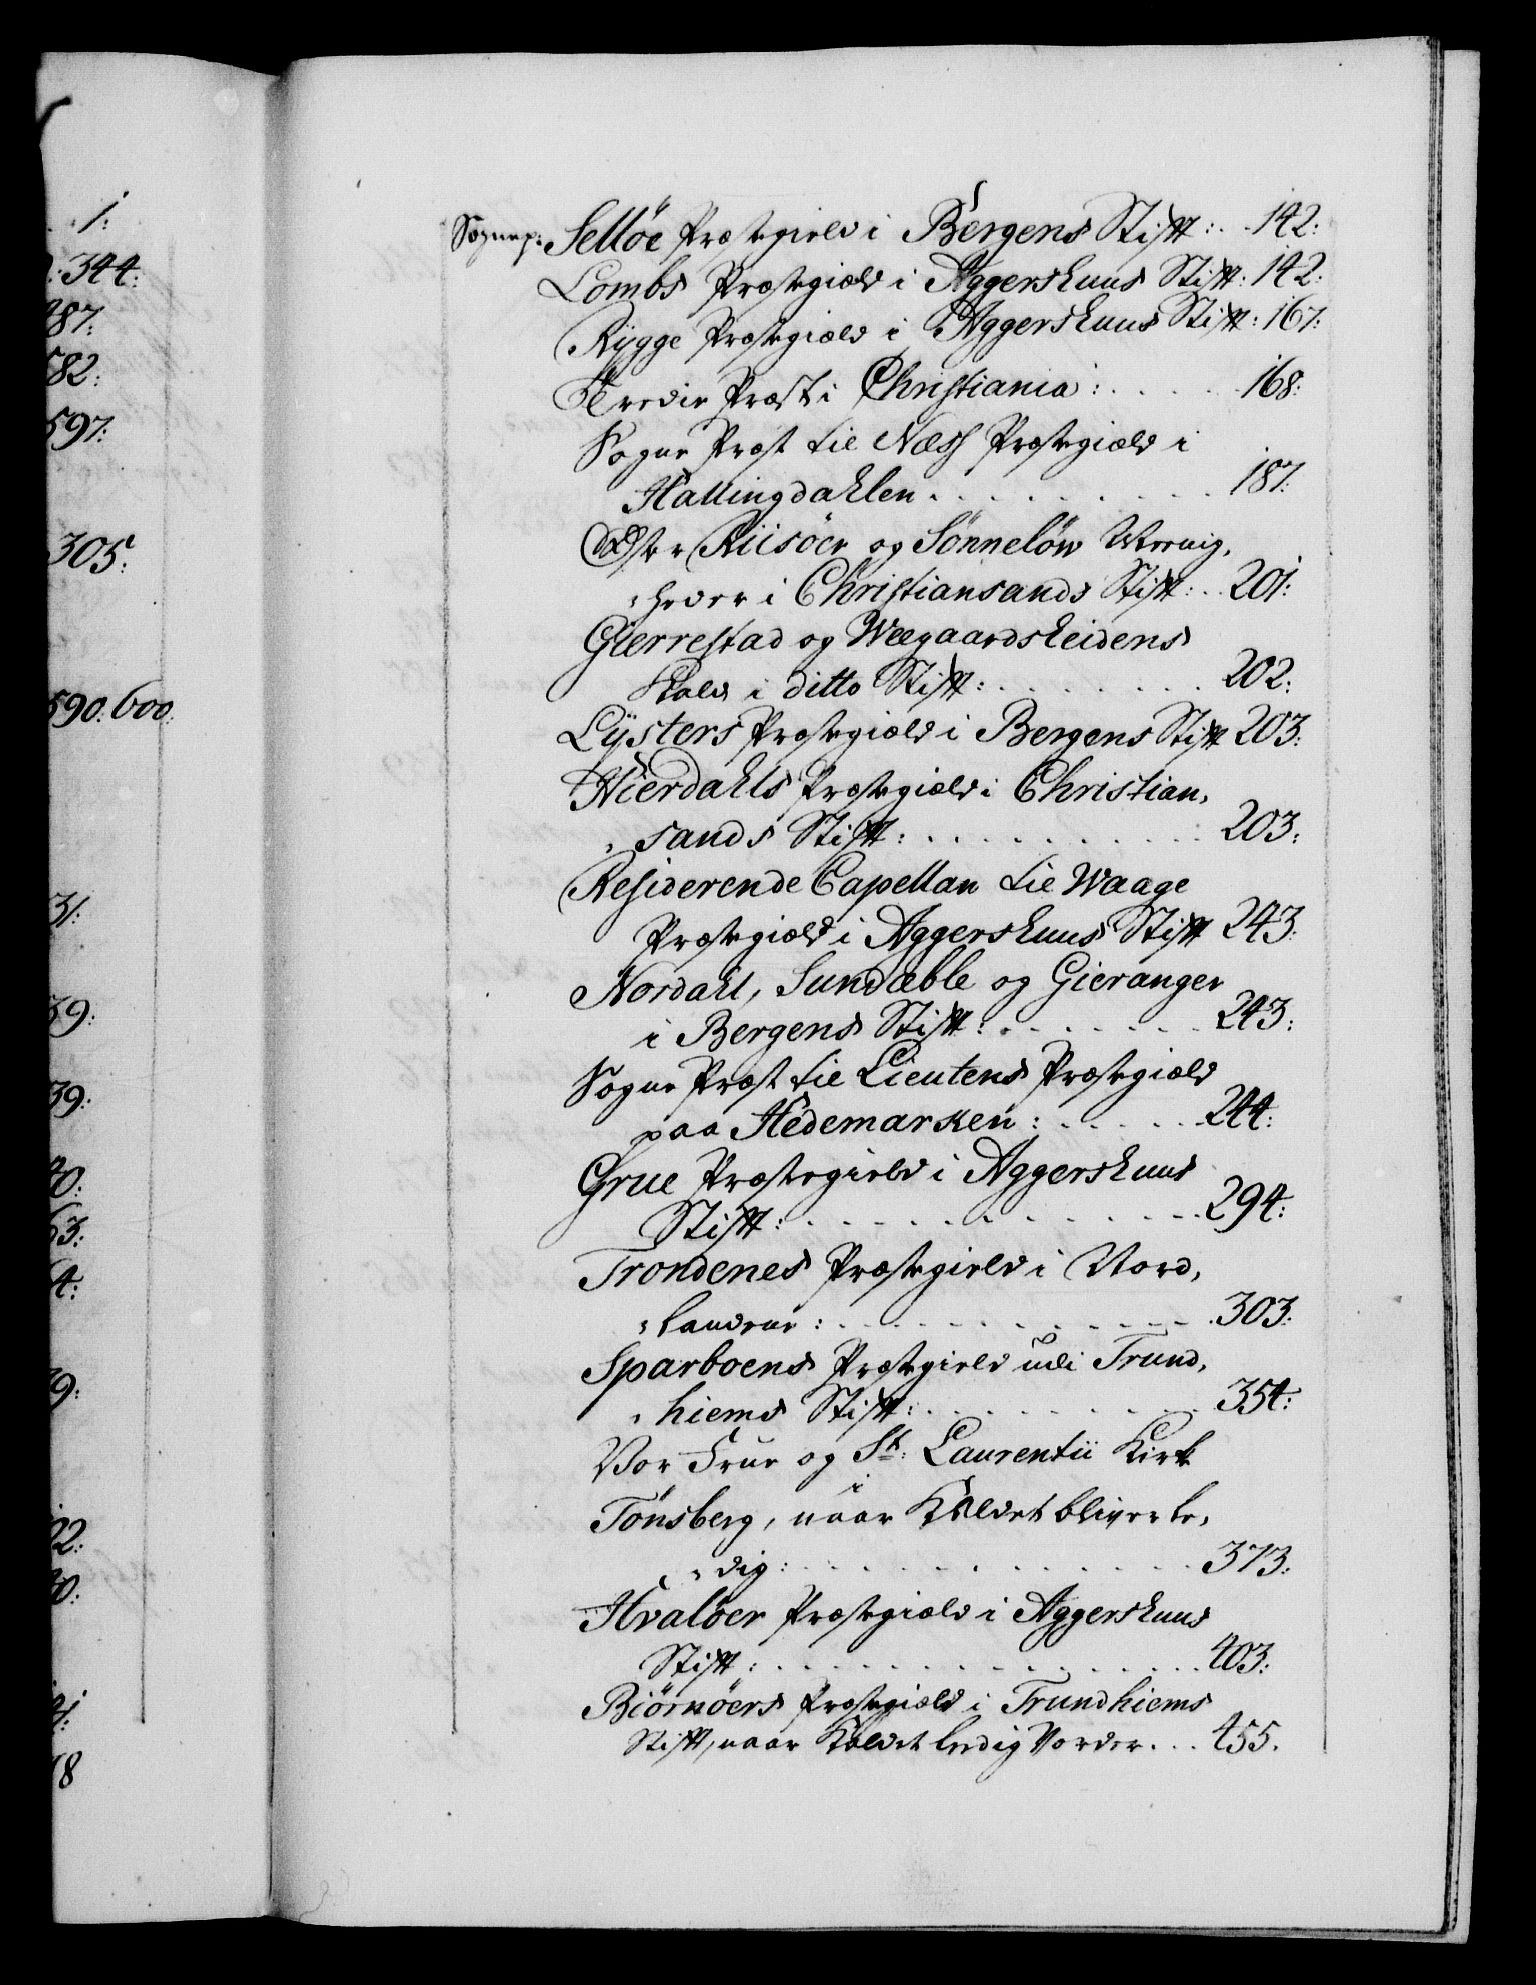 1:
344:
387:
582:
597:
305:
590: 600:
31:
39:
39:
63:
4:
9:
18
Sognep: Selløe Præstegield i Bergens Stift: . . 142:
Lombs Præstegiæld i Aggershuus Stift: 142:
Rÿgge Præstegiæld i Aggershuus Stift: 167:
Tredie Præst i Christiania: . . . . . 168:
Sogne Præst til Næss Præstegiæld i
Hallingdahlen . . . . . . . . . 187:
Øster Riisøer og Sønneløw Meenig,
„heder i Christiansands Stift: . . 201:
Gierrestad og Weegaardsheidens
Kald i ditto Stift: . . . . . . . . 202:
Lÿsters Præstegiæld i Bergens Stift 203:
Hierdahls Præstegiæld i Christian,
„sands Stift: . . . . . . . . . . 203:
Residerende Capellan til Waage
Præstegiæld i Aggershuus Stift 243:
Nordahl, Sundæble og Gieranger
i Bergens Stift: . . . . . . . 243:
Sogne Præst til Lieutens Præstegiæld
paa Hedemarken: . . . . . 244:
Grue Præstegield i Aggershuus
Stift: . . . . . . . . . . . . 294:
Trondenes Præstegield i Nord,
„landene: . . . . . . . . . . . 303:
Sparboens Præstegield udi Trund,
„hiems Stift: . . . . . . . . . 354:
Vor Frue og St: Laurentii Kirk
i
Tønsberg, naar Kaldet bliver le,
„dig: . . . . . . . . . . . . 373:
Hvaløer Præstegiæld i Aggershuus
Stift: . . . . . . . . . . . . . . 403:
Biørnøers Præstegiæld i Trundhiems
Stift, naar Kaldet ledig Vorder . . . 455.